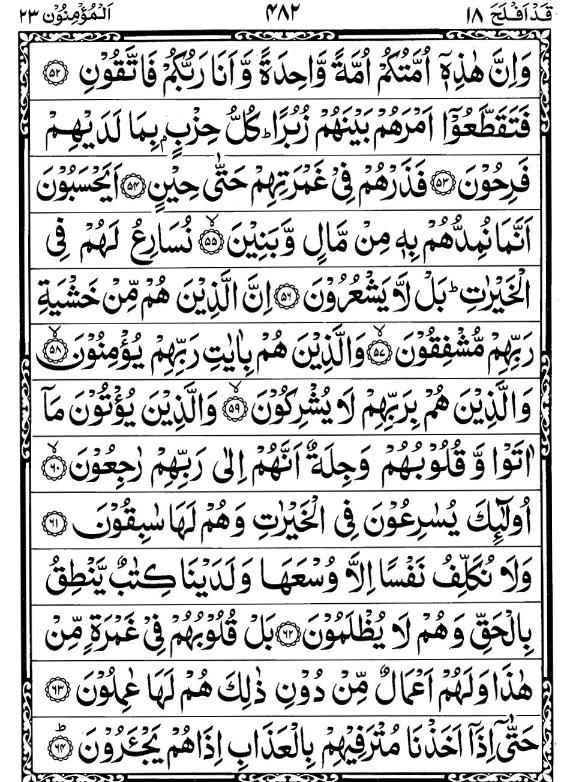 قَدْ اَفْلَحَ ١٨ ٤٨٢ اَلْمُؤْمِنُوْن ٢٣
وَاِنَّ هٰذِهٖۤ اُمَّتُكُمْ اُمَّةً وَّاحِدَةً وَّ اَنَا رَبُّكُمْ فَاتَّقُوْنِ ﴿٥٢﴾
فَتَقَطَّعُوْۤا اَمْرَهُمْ بَيْنَهُمْ زُبُرًاؕ كُلُّ حِزْبٍۭ بِمَا لَدَيْهِمْ
فَرِحُوْنَ ﴿٥٣﴾ فَذَرْهُمْ فِيْ غَمْرَتِهِمْ حَتّٰى حِيْنٍ ﴿٥٤﴾ اَيَحْسَبُوْنَ
اَنَّمَا نُمِدُّهُمْ بِهٖ مِنْ مَّالٍ وَّ بَنِيْنَ ﴿٥٥﴾ۙ نُسَارِعُ لَهُمْ فِي
الْخَيْرٰتِؕ بَلْ لَّا يَشْعُرُوْنَ ﴿٥٦﴾ اِنَّ الَّذِيْنَ هُمْ مِّنْ خَشْيَةِ
رَبِّهِمْ مُّشْفِقُوْنَ ﴿٥٧﴾ۙ وَالَّذِيْنَ هُمْ بِاٰيٰتِ رَبِّهِمْ يُؤْمِنُوْنَ ﴿٥٨﴾ۙ
وَالَّذِيْنَ هُمْ بِرَبِّهِمْ لَا يُشْرِكُوْنَ ﴿٥٩﴾ۙ وَالَّذِيْنَ يُؤْتُوْنَ مَاۤ
اٰتَوْا وَّ قُلُوْبُهُمْ وَجِلَةٌ اَنَّهُمْ اِلٰى رَبِّهِمْ رٰجِعُوْنَ ﴿٦٠﴾ۙ
اُولٰٓئِكَ يُسٰرِعُوْنَ فِي الْخَيْرٰتِ وَهُمْ لَهَا سٰبِقُوْنَ ﴿٦١﴾
وَلَا نُكَلِّفُ نَفْسًا اِلَّا وُسْعَهَا وَلَدَيْنَا كِتٰبٌ يَّنْطِقُ
بِالْحَقِّ وَهُمْ لَا يُظْلَمُوْنَ ﴿٦٢﴾ بَلْ قُلُوْبُهُمْ فِيْ غَمْرَةٍ مِّنْ
هٰذَا وَلَهُمْ اَعْمَالٌ مِّنْ دُوْنِ ذٰلِكَ هُمْ لَهَا عٰمِلُوْنَ ﴿٦٣﴾
حَتّٰۤى اِذَاۤ اَخَذْنَا مُتْرَفِيْهِمْ بِالْعَذَابِ اِذَا هُمْ يَجْـَٔرُوْنَ ﴿٦٤﴾ؕ